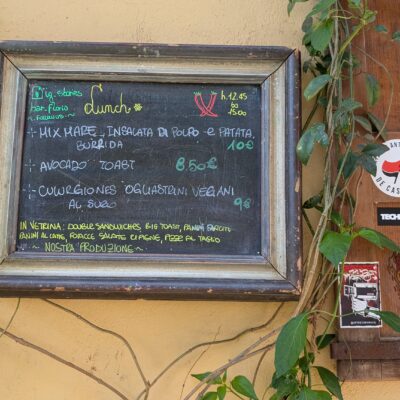 Lunch
h. 12.45
15.00
MIX MARE INSALATA DI POLPO e PATATA,
BURRIDA 10€
AVOCADO TOAST 8.50€
CULURGIONES OGLIASTRINI VEGANI
AL SUGO 9€
IN VETRINA: DOUBLE SANDWICHES BIG TOAST, PANINI FARCITI
PANINI AL LATTE, FOCACCE SALATE RIPIENE, PIZZE AL TAGLIO
~ NOSTRA PRODUZIONE ~
DE CAS
TECH